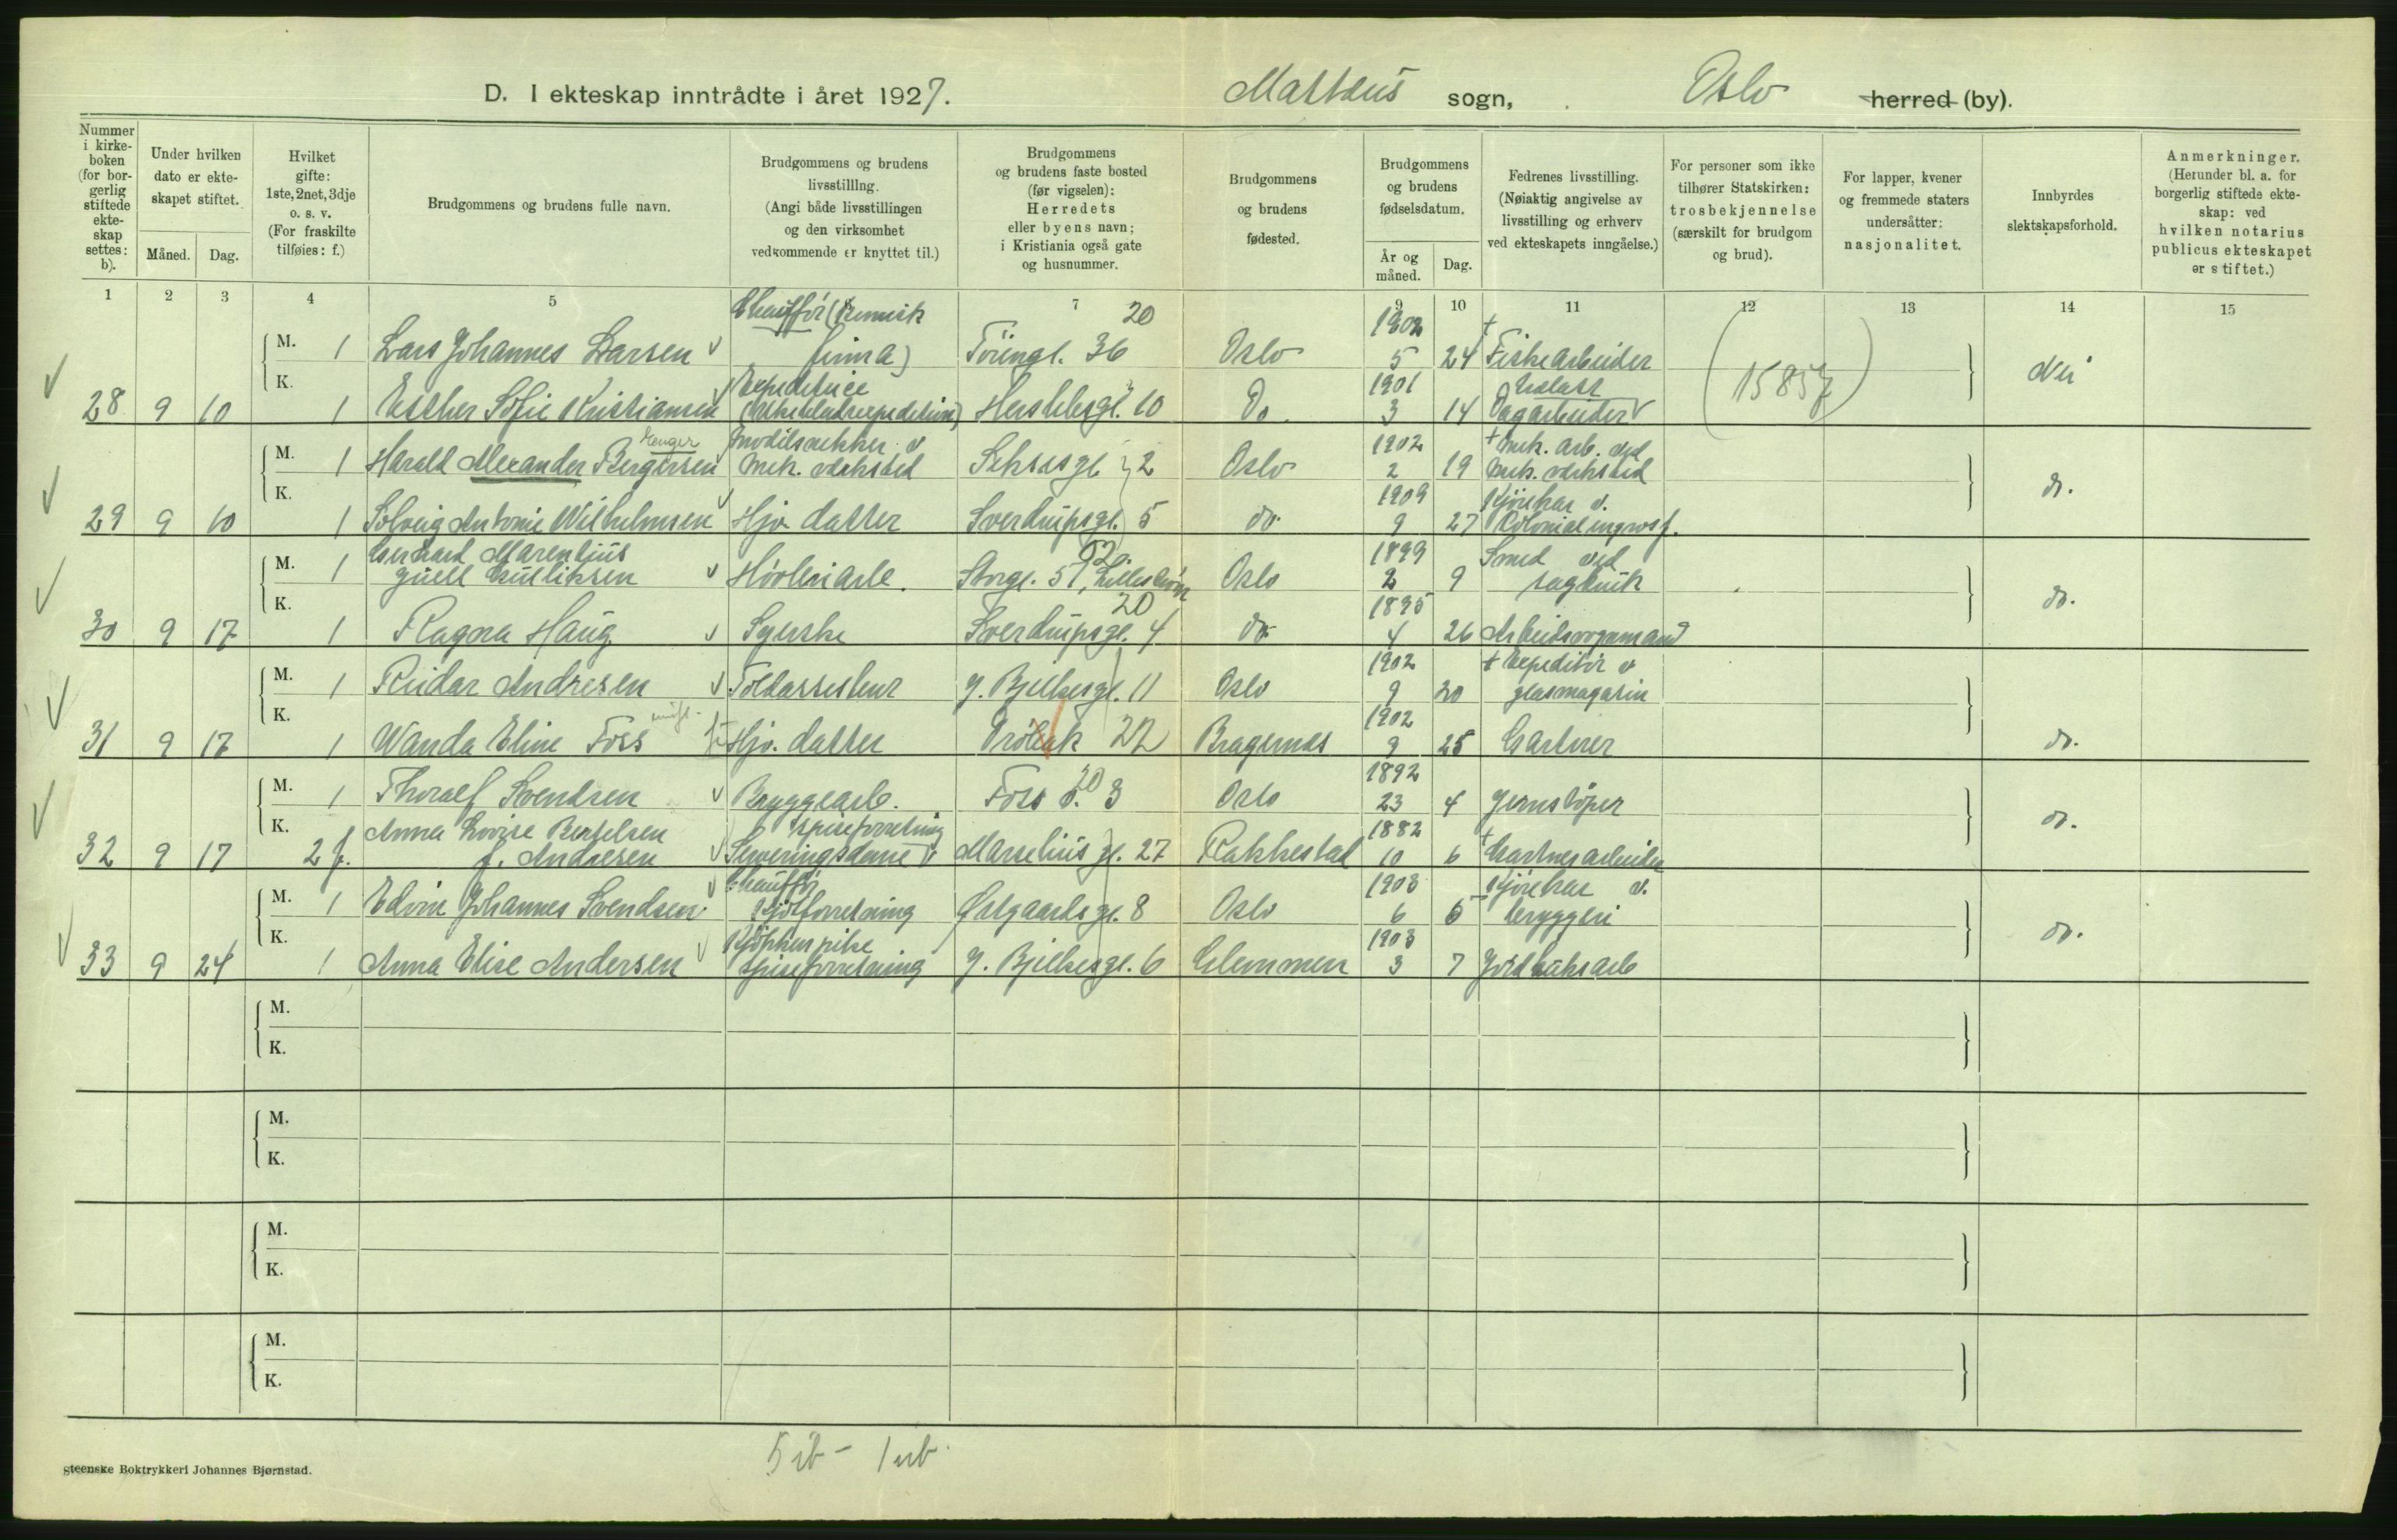 D. I ekteskap inntrådte i året 1927. Mattæus sogn, Oslo herred (by).
Nummer i kirkeboken (for borgerlig stiftede ekteskap settes: b).
Under hvilken dato er ekteskapet stiftet.
Måned. Dag.
Hvilket gifte: 1ste, 2net, 3dje o. s. v. (For fraskilte tilføies: f.)
Brudgommens og brudens fulle navn.
Brudgommens og brudens livsstilling. (Angi både livsstillingen og den virksomhet vedkommende er knyttet til.)
Brudgommens og brudens faste bosted (før vigselen): Herredets eller byens navn; i Kristiania også gate og husnummer.
Brudgommens og brudens fødested.
Brudgommens og brudens fødselsdatum.
År og måned. Dag.
Fedrenes livsstilling. (Nøiaktig angivelse av livsstilling og erhverv ved ekteskapets inngåelse.)
For personer som ikke tilhører Statskirken: trosbekjennelse (særskilt for brudgom og brud).
For lapper, kvener og fremmede staters undersåtter: nasjonalitet.
Innbyrdes slektskapsforhold.
Anmerkninger. (Herunder bl. a. for borgerlig stiftede ekteskap: ved hvilken notarius publicus ekteskapet er stiftet.)
1 2 3 4 5 6 7 9 10 11 12 13 14 15
M. 1 Lars Johannes Larsen Chauffør (Kemisk firma) Töiengt. 36 20 Oslo 1902 5 24 † Fiskearbeider
28 9 10 K. 1 Esther Sofie Kristiansen Expeditrice Herslebsgt. 10 Do. 1901 3 14 Dagarbeider (15857) Nei
M. 1 Harald Alexander Bergersen Modelsnekker v. mek. verksted 2 Oslo 1902 2 19 † Mek. arb. ved mek. verksted
29 9 10 K. 1 Solveig Antonie Wilhelmsen Hjv. datter Sverdrupsgt. 5 do. 1909 9 27 Kjørekar v. Kolonialengrosf. do.
M. 1 Gerhard Marentius Juell Gulliksen Høvleriarb. Storgt. 51, Lillestrøm Oslo 1899 2 9 Smed ved sagbruk
30 9 17 K. 1 Ragna Haug Syerske Sverdrupsgt. 4 20 do. 1895 4 26 Arbeidsformand do.
M. 1 Reidar Andresen Toldassistent J. Bjelkesgt. 11 Oslo 1902 9 20 † Expeditør v. glasmagasin
31 9 17 K. 1 Wanda Eline Foss Hjv. datter Drøbak 22 Bragernes 1902 9 25 Gartner do.
M. 1 Thoralf Svendsen Bryggearb. Foss 3 20 Oslo 1892 23 4 Jernstøper
32 9 17 K. 2 f. Anna Lovise Bertelsen f. Andresen Serveringsdame v. spiseforretning Marselius gt. 27 Rakkestad 1882 10 6 † Gartnerarbeider do.
M. 1 Edvin Johannes Svendsen Chauffør Kjølforretning Østgaards gt. 8 Oslo 1903 6 5 Kjørekar v. bryggeri
33 9 24 K. 1 Anna Elise Andersen Kjøkkenpike spiseforretning J. Bjelkesgt. 6 Glemmen 1903 3 7 Jordbruksarb do.
M.
K.
M.
K.
M.
K.
M.
K.
5 ib - 1 ub.
steenske Boktrykkeri Johannes Bjørnstad.